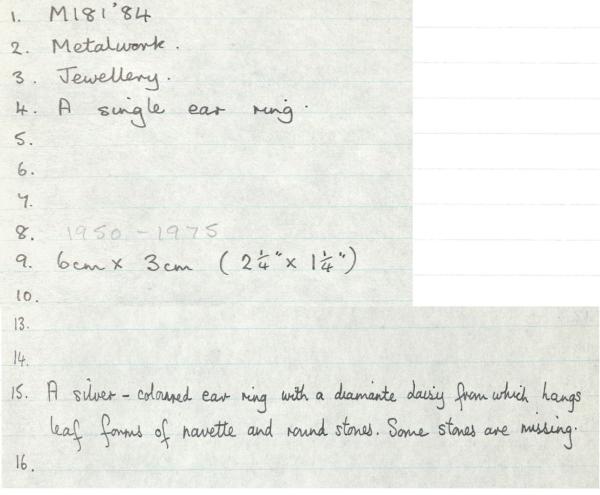 1. M181'84
2. Metalwork.
3. Jewellery.
4. A single ear ring.
5.
6.
7.
8. 1950 - 1975
9. 6cm x 3cm ( 2¼" x 1¼")
10.
13.
14.
15. A silver-coloured ear ring with a diamante daisy from which hangs
leaf forms of navette and round stones. Some stones are missing.
16.